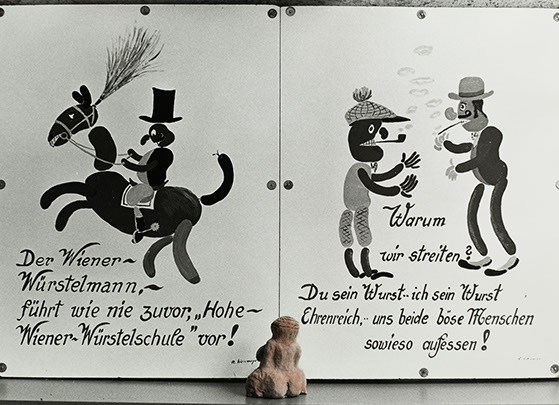 Der Wiener-
Würstelmann,-
führt wie nie zuvor, „Hohe-
Wiener-Würstelschule" vor!
Warum
wir streiten?
Du sein Wurst-- ich sein Wurst
Ehrenreich,-- uns beide böse Menschen
sowieso aufessen!